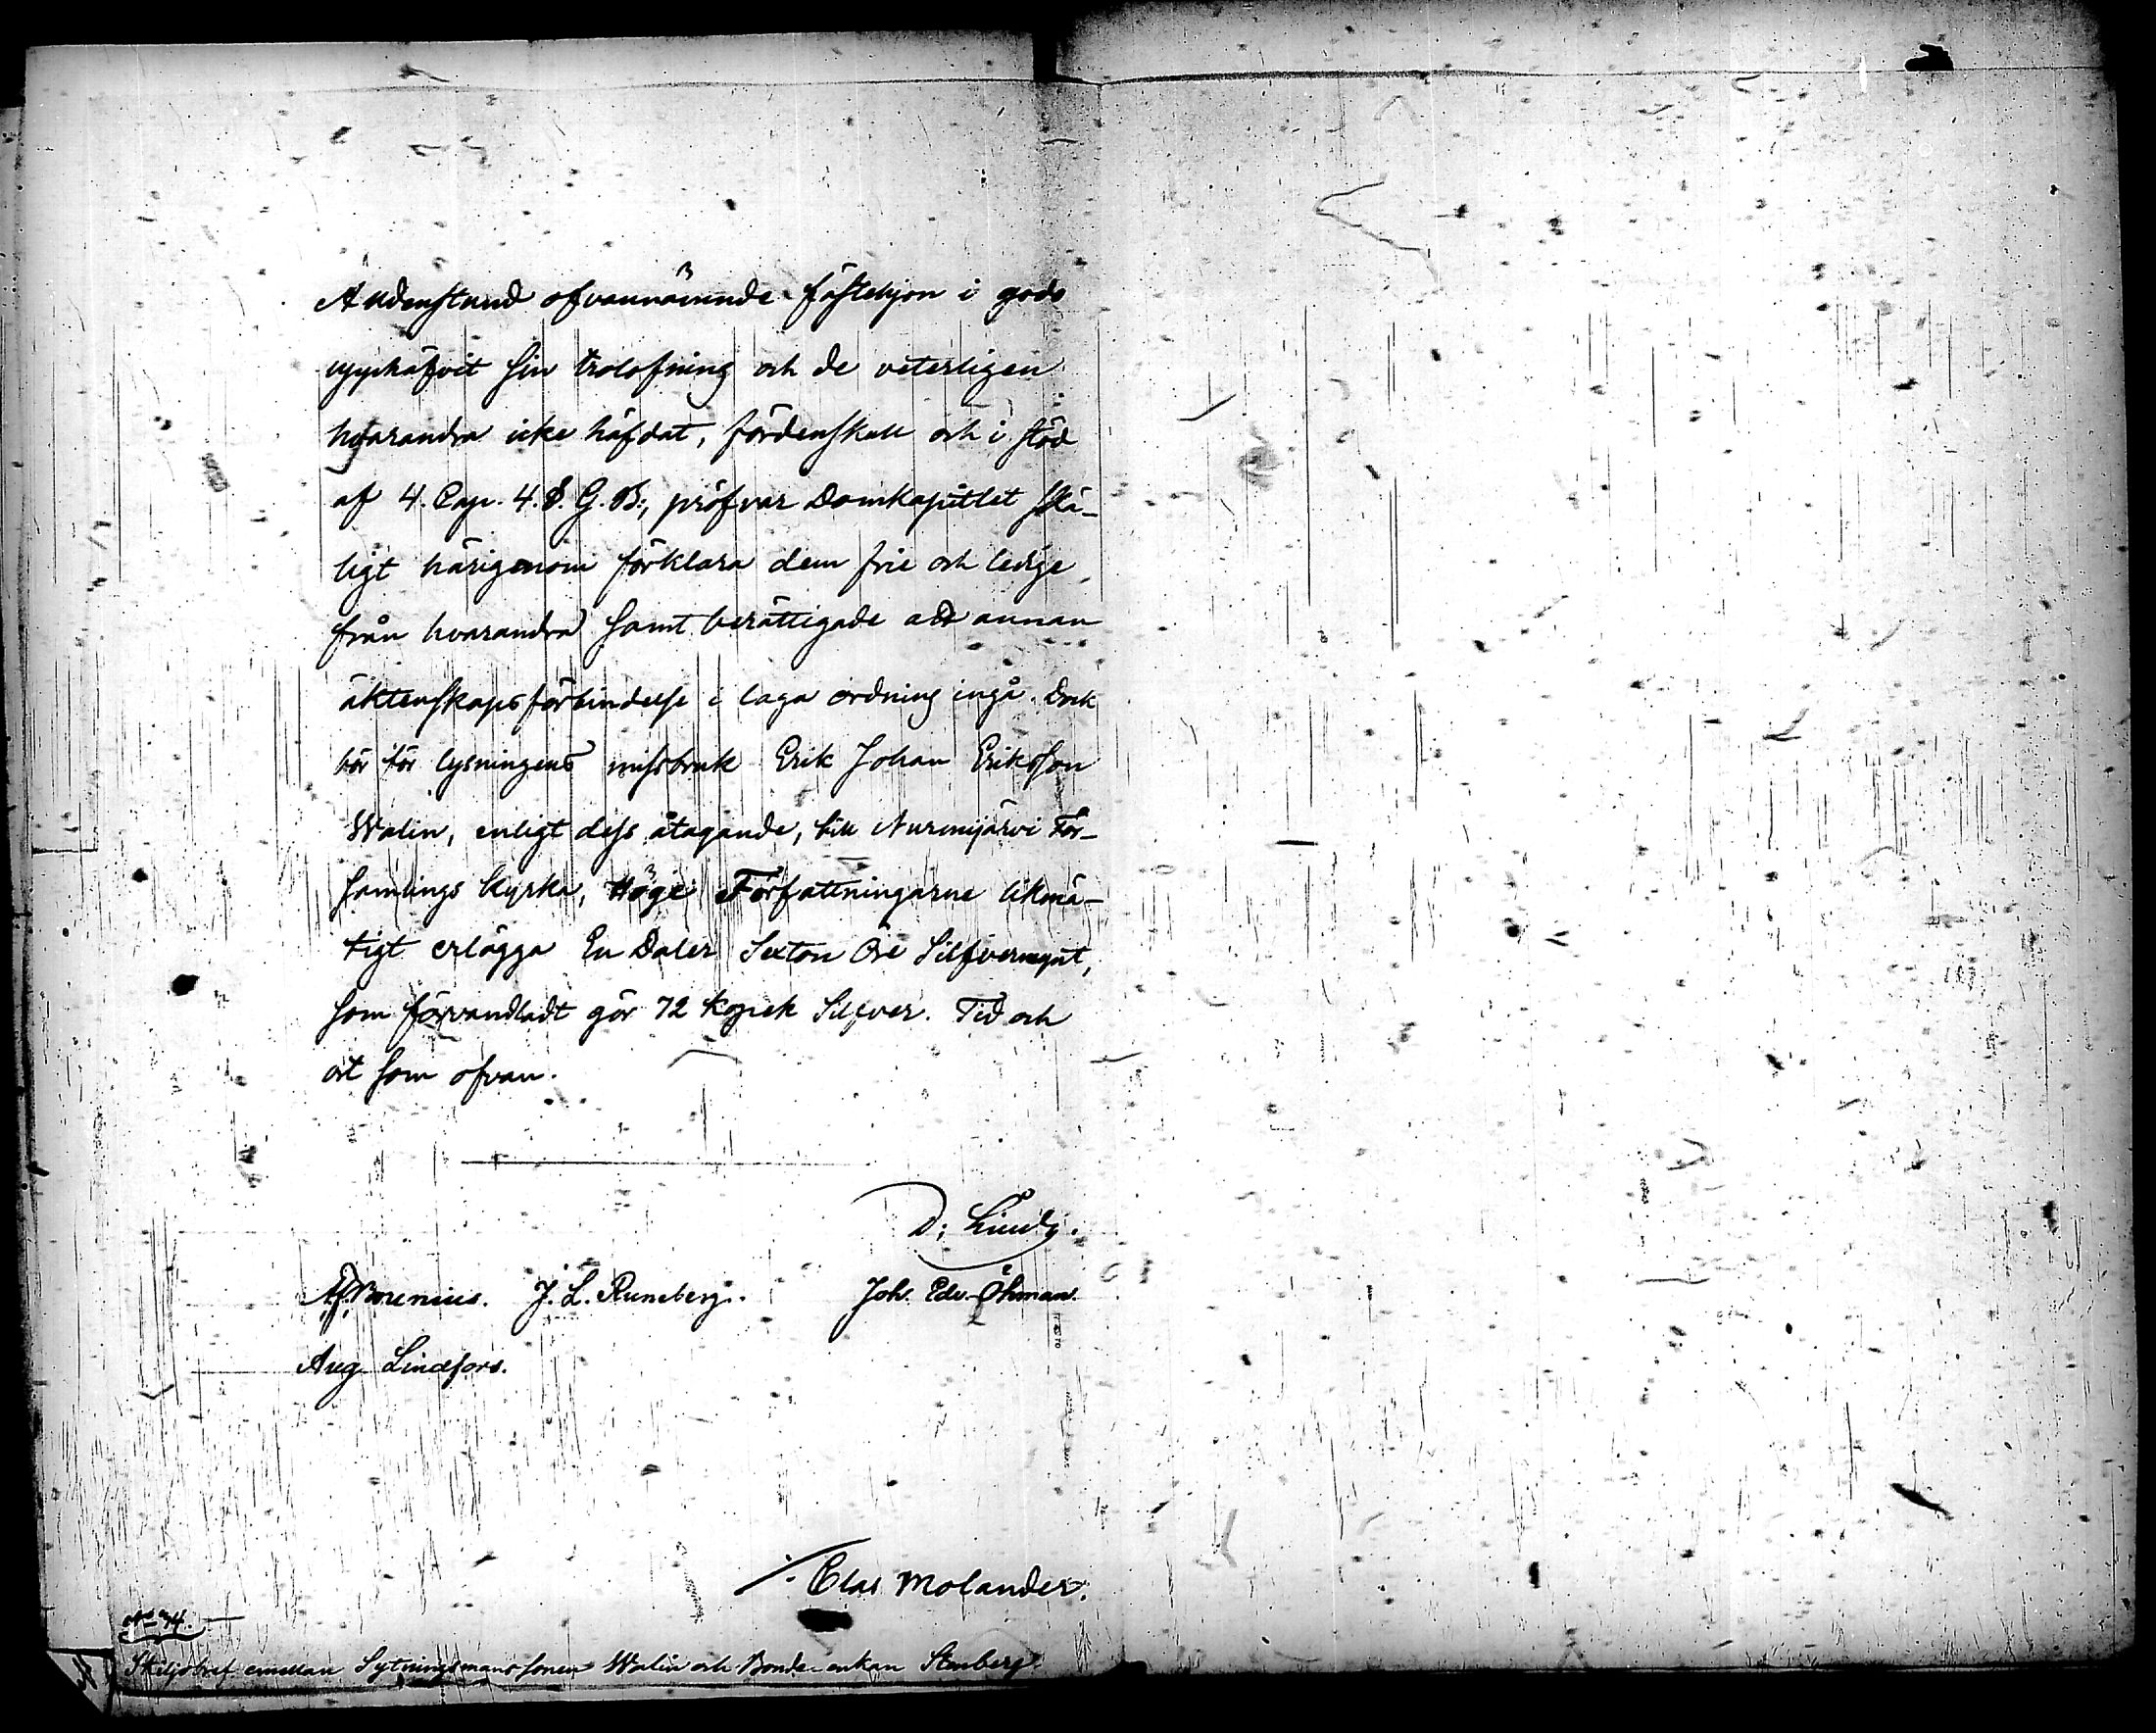 Alldenstund ofvannämnde fästehjon i godo
upphäfvit sin trolofning och de veterligen
hvarandra icke häfdat, fördenskull och i stöd
af 4. Cap. 4. §. G. B., pröfvar Domkapitlet skä-
ligt härigenom förklara dem frie och ledige
från hvarandra samt berättigade att annan
äktenskapsförbindelse i laga ordning ingå. Dock
bör för lysningens missbruk Erik Johan Eriksson
Walin, enligt dess åtagande, till Nurmijärvi För-
samlings kyrka, Höge Författningarne likmä-
tigt erlägga En Daler Sexton Öre Silfvermynt,
som förvandladt gör 72 kopek Silfver. Tid och
ort som ofvan.
A. J. Borenius. J. L. Runeberg. Joh. Edv. Öhman.
Aug Lindfors.
Clas Molander.
No 74.
Skiljobref emellan Sytningsmanssonen Walin och Bonde-enkan Stenberg